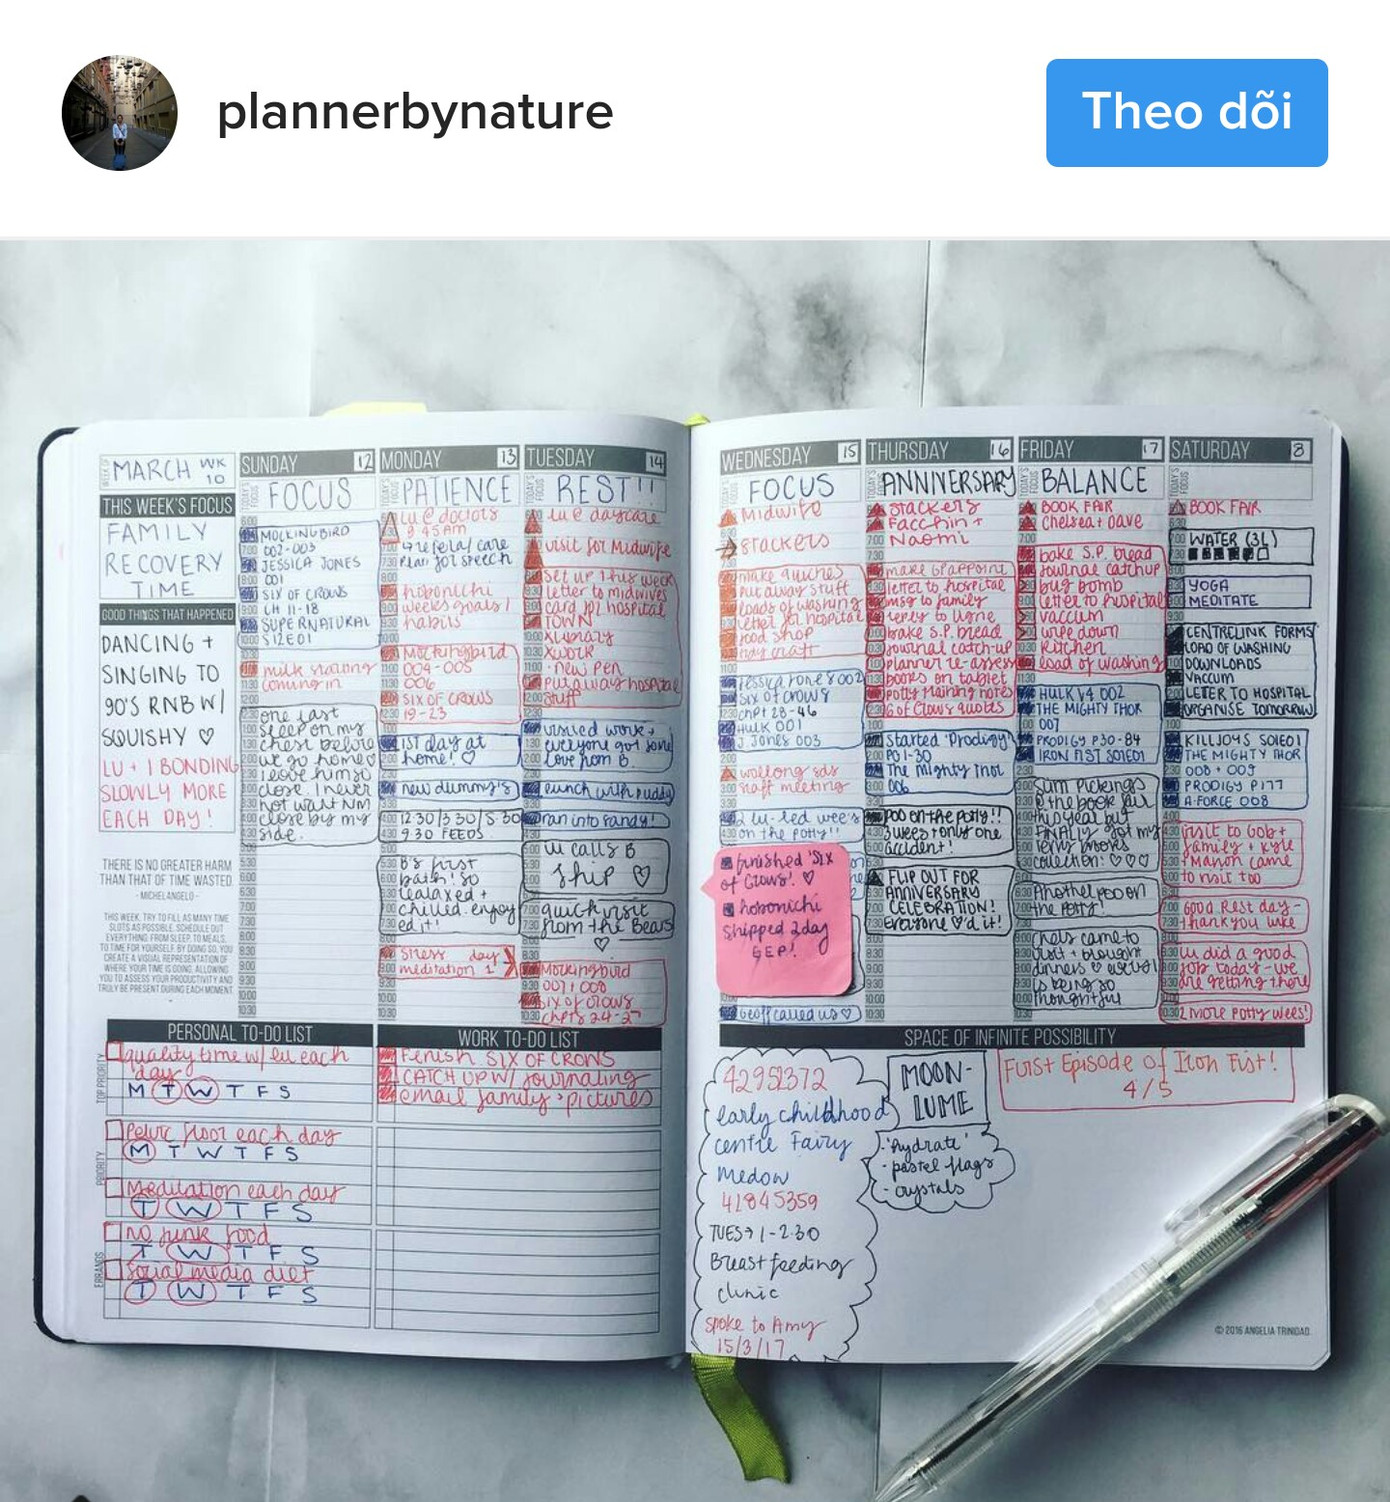 plannerbynature
Theo dõi
MARCH WK 10
THIS WEEK'S FOCUS
FAMILY
RECOVERY
TIME
GOOD THINGS THAT HAPPENED
DANCING +
SINGING TO
90'S RNB W/
SQUISHY ♡
LU + I BONDING
SLOWLY MORE
EACH DAY!
THERE IS NO GREATER HARM
THAN THAT OF TIME WASTED.
- MICHELANGELO -
THIS WEEK, TRY TO FILL AS MANY TIME
SLOTS AS POSSIBLE. SCHEDULE OUT
EVERYTHING FROM SLEEP, TO MEALS,
TO TIME FOR YOURSELF. BY DOING SO, YOU
CREATE A VISUAL REPRESENTATION OF
WHERE YOUR TIME IS GOING, ALLOWING
YOU TO ASSESS YOUR PRODUCTIVITY AND
TRULY BE PRESENT DURING EACH MOMENT.
SUNDAY 12
FOCUS
MOCKINGBIRD
002-003
JESSICA JONES
001
SIX OF CROWS
CH 11-18
SUPERNATURAL
S12E01
milk
coming in
one last
sleep on my
chest before
we go home♡
close. I never
not want NM
close by my
side.
MONDAY 13
PATIENCE
Lu @ doctors
9.45am
referal care
plan for speech
hobonichi
weeks goals /
habits
Mockingbird
004-005
006
SIX OF CROWS
19-23
1ST day at
home! ♡
new dummy's
12 30/3 30/5 30
9.30 FEEDS
B's first
bath! so
relaxed +
chilled. enjoy
ed it!
stress day
meditation 1
TUESDAY 14
REST!!
Lu @ daycare
visit for Midwife
set up this week
letter to midwives
card for hospital
TOWN
Xlibrary
Xwork
·new pen
put away hospital
stuff
visited work +
everyone got some
love from B.
lunch with Ruddy
ran into Sandy!
Lu calls B
ship ♡
quick visit
from the Bears
♡
Mockingbird
007+008
six of crows
chpts 24-27
WEDNESDAY 15
FOCUS
Midwife
Stackers
make quiches
put away stuff
loads of washing
letter for hospital
food shop
craft
Jessica Jones 002
Six of Crows
chpt 28-46
HULK 001
J. Jones 003
staff meeting
2 Lu-led wee's
on the potty!!
finished 'Six
of Crows'! ♡
hobonichi
shipped 2day
EEP!
Geoff called us ♡
THURSDAY 16
ANNIVERSARY
Stackers
Facchin +
Naomi
make GP appoint
letter to hospital
msg to family
reply to Ligne
bake S.P. bread
journal catch-up
planner re-assess
books on tablet
potty training notes
6 of Crows quotes
started 'Prodigy'
PG 1-30
The Mighty Thor
006
POO on the potty!!
3 wees + only one
accident!
FLIP OUT FOR
ANNIVERSARY
CELEBRATION!
Everyone ♡'d it!
FRIDAY 17
BALANCE
BOOK FAIR
Chelsea + Dave
bake S.P. bread
journal catchup
bug bomb
letter to hospital
vaccum
wipe down
kitchen
load of washing
HULK V4 002
THE MIGHTY THOR
007
PRODIGY P30-84
IRON FIST S01E01
Slim Pickings
@ the book fair
this year but
FINALLY got my
collection! ♡♡♡
Another poo on
the potty!
Chels came to
visit + brought
dinners ♡
is being so
thoughtful
SATURDAY 8
BOOK FAIR
WATER (3L)
YOGA
MEDITATE
CENTRELINK FORMS
LOAD OF WASHING
DOWNLOADS
VACCUM
LETTER TO HOSPITAL
ORGANISE TOMORROW
KILLJOYS S01E01
THE MIGHTY THOR
008 + 009
PRODIGY P177
A-FORCE 008
visit to Gob +
family + Kyle
+ Manon came
to visit too
Good Rest day -
thank you Luke
Lu did a good
job today - we
are getting there
2 more potty wees!
PERSONAL TO-DO LIST
quality time w/ Lu each
day
M T W T F S
Pelvic floor each day
M T W T F S
Meditation each day
T W T F S
no junk food
T W T F S
Social media diet
T W T F S
WORK TO-DO LIST
Finish SIX OF CROWS
CATCH UP W/ journaling
email family · pictures
SPACE OF INFINITE POSSIBILITY
42951372
early childhood
centre Fairy
Medow
41845359
TUES → 1-2.30
Breastfeeding
clinic
spoke to Amy
15/3/17
MOON-
LUME
·'hydrate'
- pastel flags
- crystals
First Episode of Iron Fist!
4/5
© 2016 ANGELIA TRINIDAD